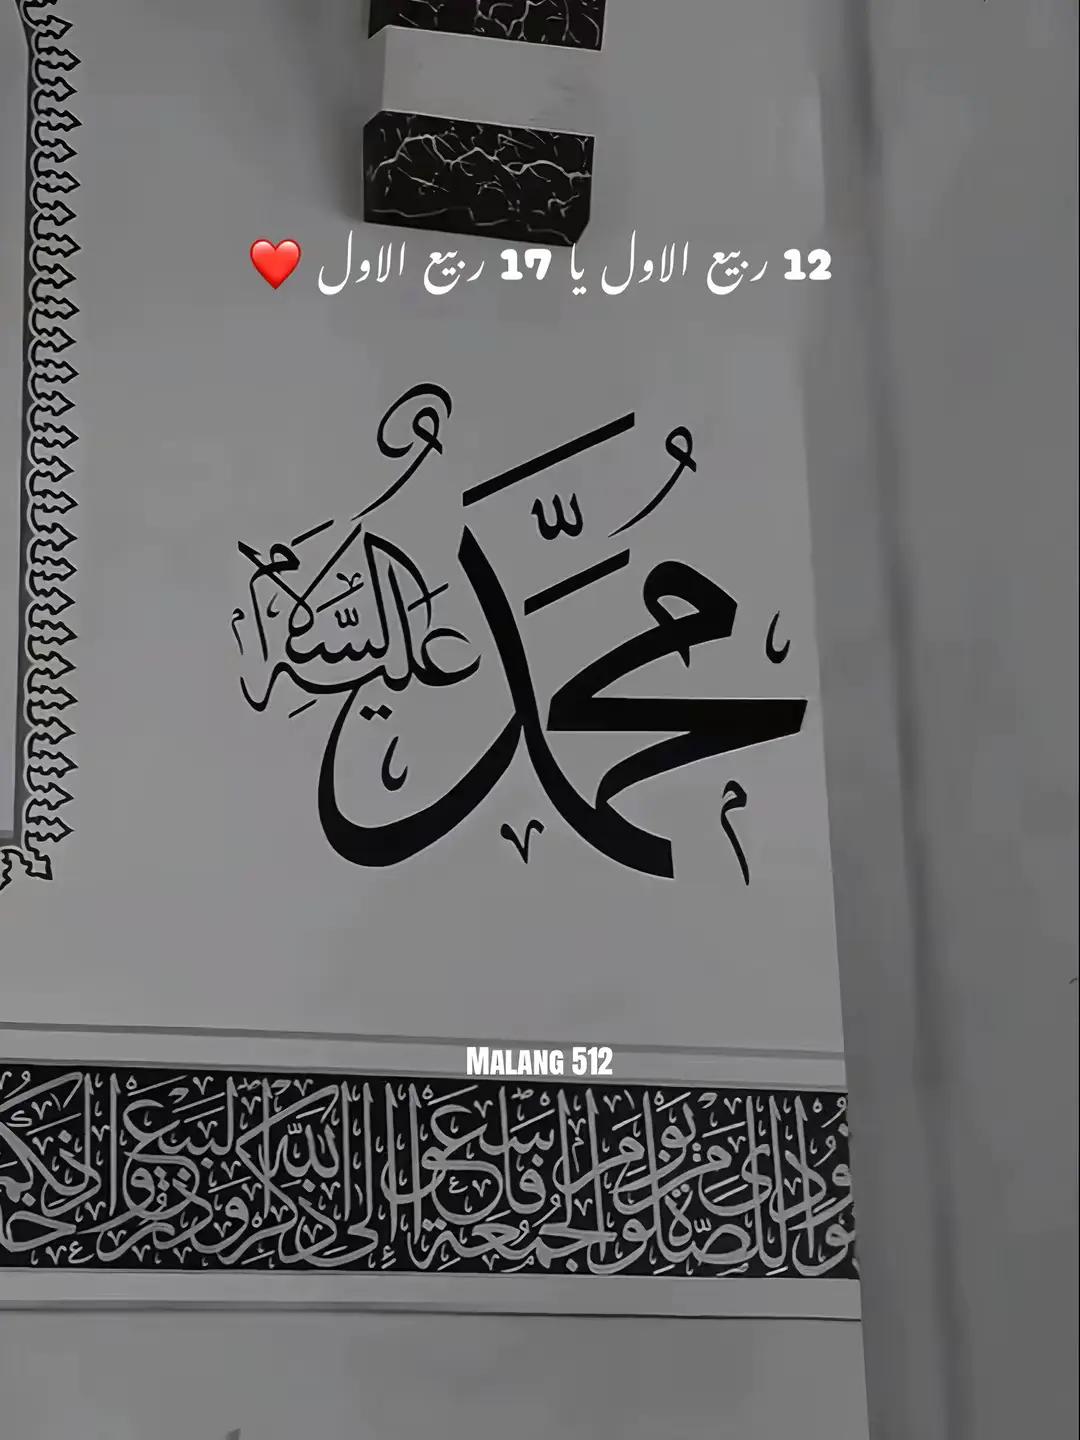 12 ربیع الاول یا 17 ربیع الاول ❤️
محمد
عليه السلام
MALANG 512
نودي للصلوة من يوم الجمعة فاسعوا الى ذكر الله وذروا البيع ذلكم